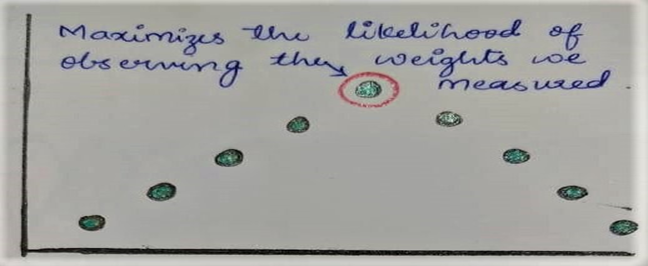 Maximizes the likelihood of
observing the weights we
measured